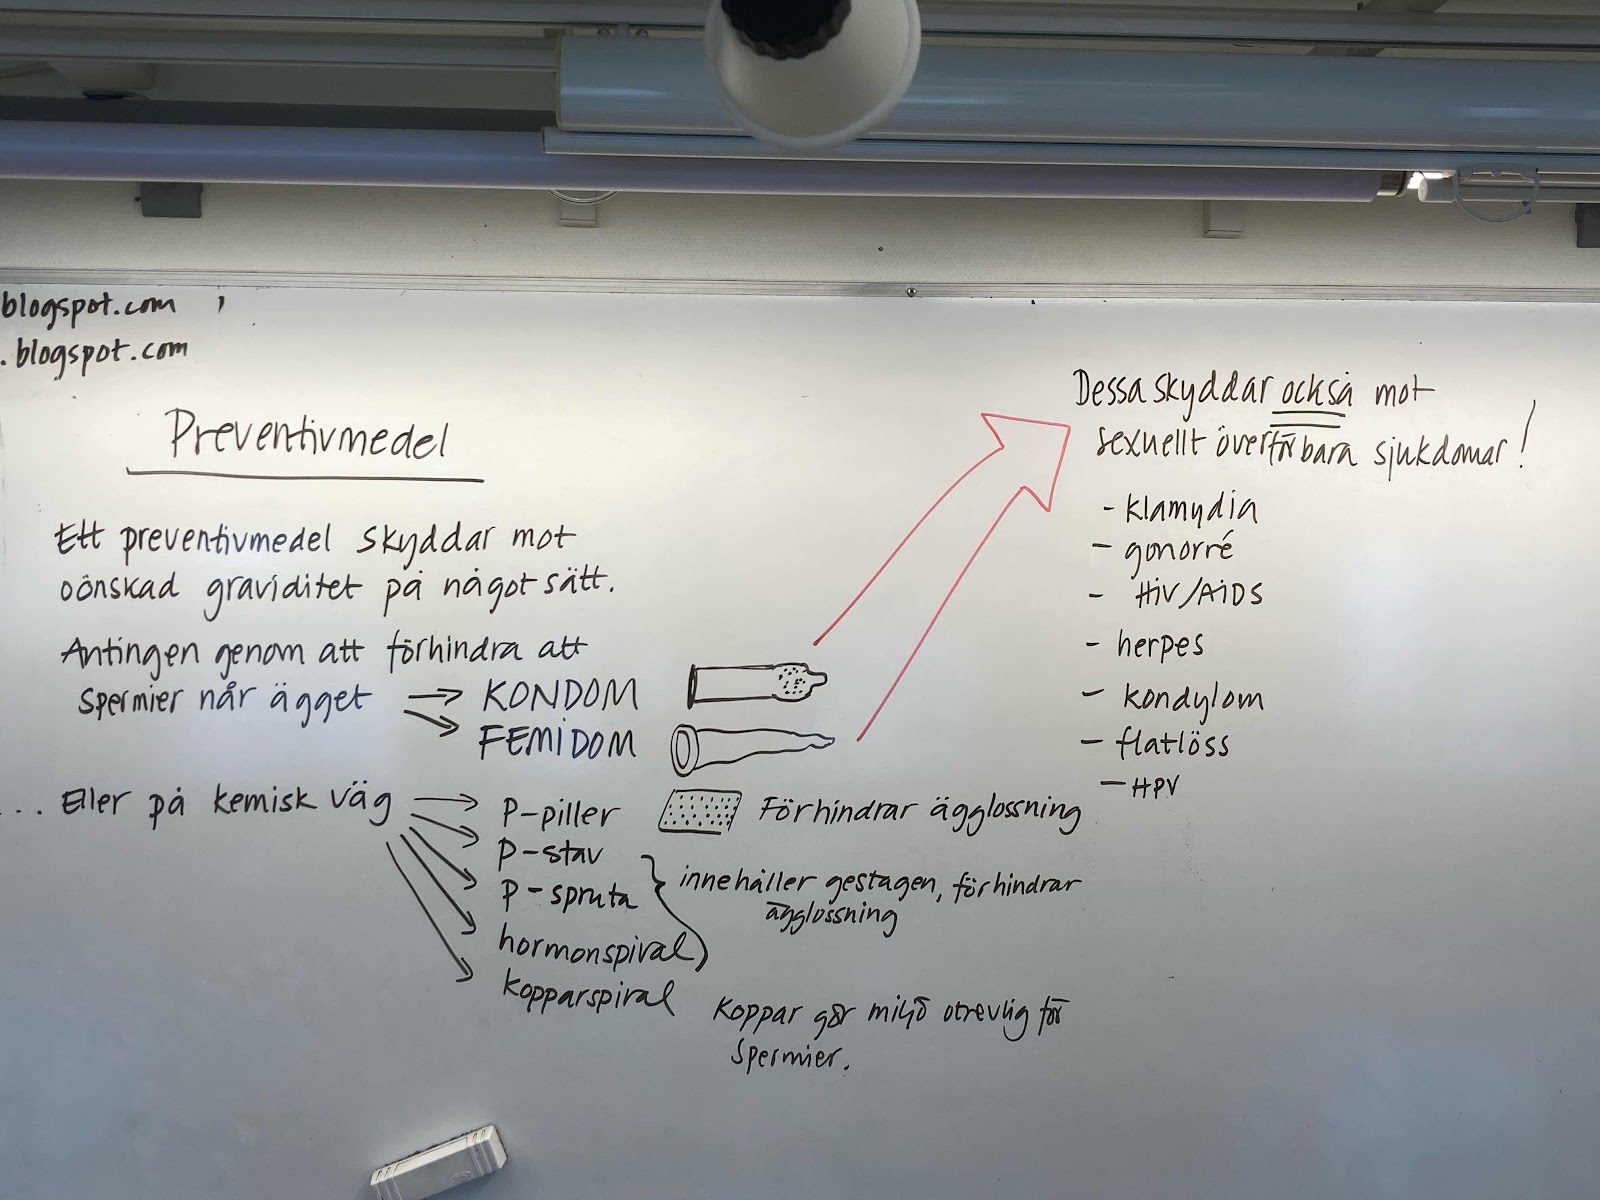 blogspot.com
.blogspot.com
Preventivmedel
Ett preventivmedel skyddar mot
oönskad graviditet på något sätt.
Antingen genom att förhindra att
spermier når ägget → KONDOM
→ FEMIDOM
... Eller på kemisk väg → P-piller Förhindrar ägglossning
P-stav
P-spruta
hormonspiral
innehåller gestagen, förhindrar
ägglossning
kopparspiral
Koppar gör miljö otrevlig för
spermier.
Dessa skyddar också mot
sexuellt överförbara sjukdomar!
- klamydia
- gonorré
- HIV/AIDS
- herpes
- kondylom
- flatlöss
- HPV